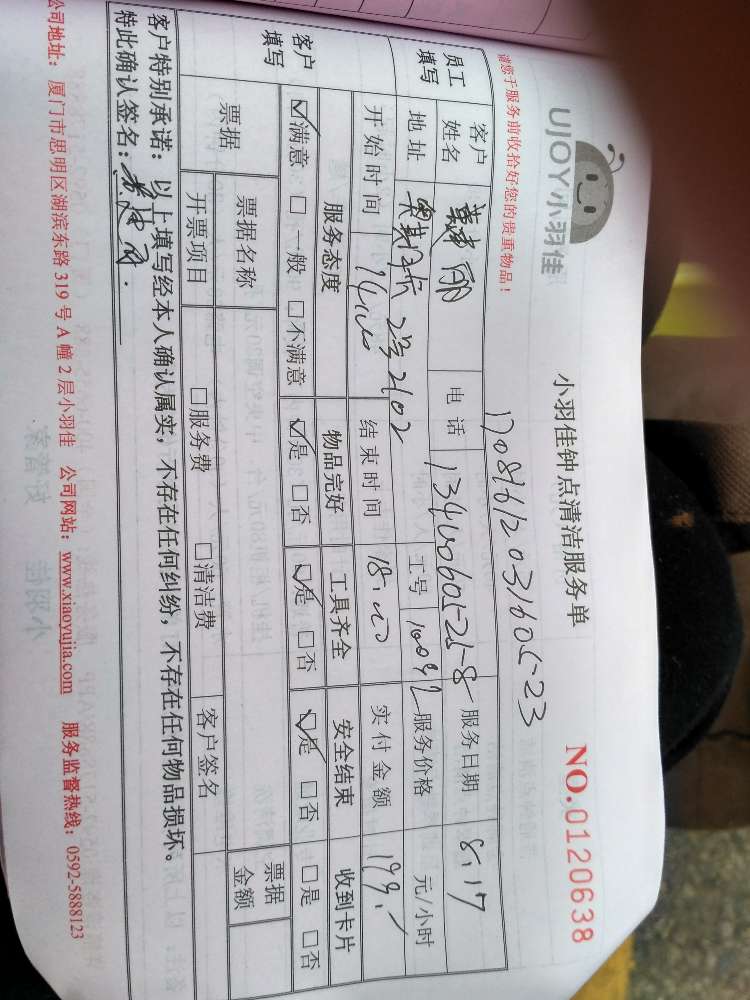 UJOY小羽佳
小羽佳钟点清洁服务单
NO.0120638
请您于服务前收拾好您的贵重物品！
员工填写
客户姓名 丽 电话 服务日期 8.17
地址 2号2102 工号 服务价格 元/小时
开始时间 14:00 结束时间 18:00 实付金额 199.
客户填写
服务态度 物品完好 工具齐全 安全结束 收到卡片
☑满意 □一般 □不满意 ☑是 □否 ☑是 □否 ☑是 □否 □是 □否
票据 票据名称 票据金额
开票项目 □服务费 □清洁费 客户签名
客户特别承诺：以上填写经本人确认属实，不存在任何纠纷，不存在任何物品损坏。
特此确认签名：
公司地址：厦门市思明区湖滨东路 319 号 A 幢 2 层小羽佳 公司网站：www.xiaoyujia.com 服务监督热线：0592-5888123